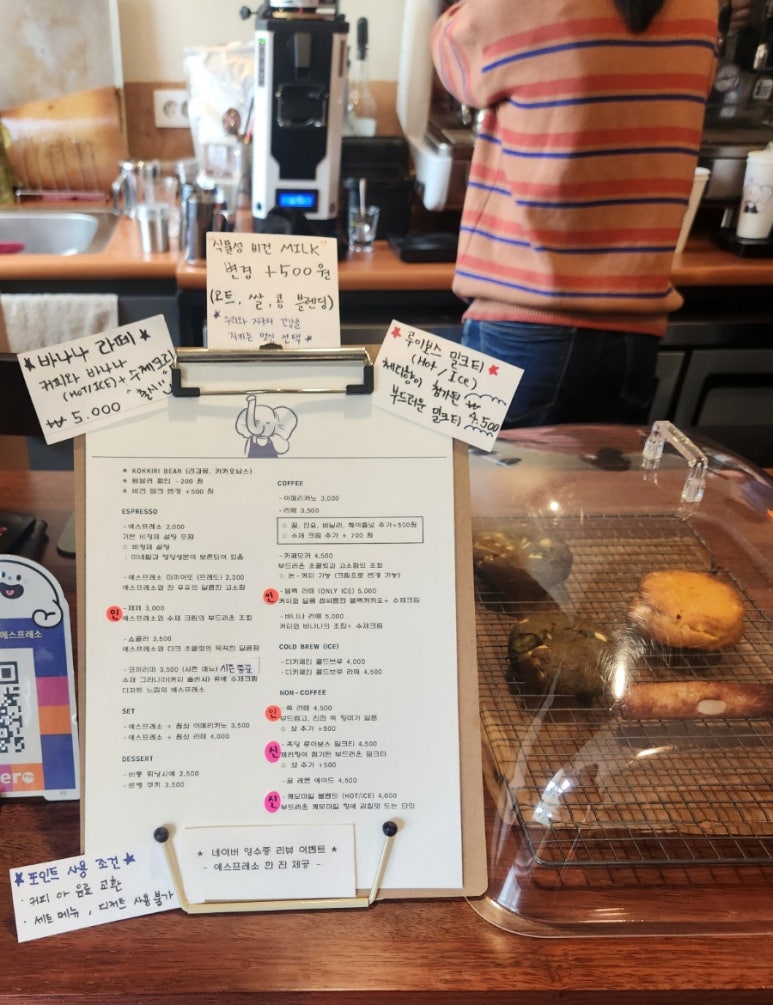 "식물성 비건 MILK"
변경 +500원
(오트, 쌀, 콩 블렌딩)
우리와 지구의 건강을
지키는 멋진 선택
★바나나 라떼★
커피와 바나나
(HOT/ICE) + 수제크림
"출시"
₩ 5.000
★루이보스 밀크티★
(Hot / Ice)
체다향이 첨가된
부드러운 밀크티
₩ 4,500
★ 텀블러 할인 -200 원
★ 비건 밀크 변경 +500 원
ESPRESSO
- 에스프레소 2,000
기본 비정제 설탕 포함
☆ 비정제 설탕
: 미네랄과 영양성분이 보존되어 있음
- 에스프레소 마끼아또 (프레도) 2,300
에스프레소와 찬 우유의 달콤한 고소함
인
3,000
에스프레소와 수제 크림의 부드러운 조화
- 쇼콜라 3,500
에스프레소와 다크 초콜릿의 묵직한 달콤함
- 코끼리따 3,500 (시즌 메뉴) 시즌종료
수제 그라니따(커피 슬러시) 위에 수제크림
디저트 느낌의 에스프레소
SET
- 에스프레소 + 원싱 아메리카노 3,500
- 에스프레소 + 원싱 라떼 4,000
DESSERT
- 비똥 휘낭시에 2,500
- 르뱅 쿠키 3,500
COFFEE
- 아메리카노 3,000
- 라떼 3,500
☆ 꿀, 연유, 바닐라, 헤이즐넛 추가+500원
☆ 수제 크림 추가 + 700 원
- 카페모카 4,500
부드러운 초콜릿과 고소함의 조화
☆ 논-커피 가능 (크림으로 변경 가능)
인
- 블랙 라떼 (ONLY ICE) 5,000
커피와 달콤 쌉싸름한 블랙카카오+ 수제크림
- 바나나 라떼 5,000
커피와 바나나의 조합+ 수제크림
COLD BREW (ICE)
- 디카페인 콜드브루 4,000
- 디카페인 콜드브루 라떼 4,500
NON-COFFEE
인
- 쑥 라떼 4,500
부드럽고, 진한 쑥 향미가 일품
☆ 샷 추가 +500
신
루이보스 밀크티 4,500
체다향이 첨가된 부드러운 밀크티
☆ 샷 추가 +500
- 꿀 레몬 에이드 4,500
신
- 캐모마일 블렌드 (HOT/ICE) 4,000
★ 네이버 영수증 리뷰 이벤트 ★
- 에스프레소 한 잔 제공 -
★포인트 사용 조건★
· 커피 아 음료 교환
· 세트 메뉴, 디저트 사용불가
에스프레소